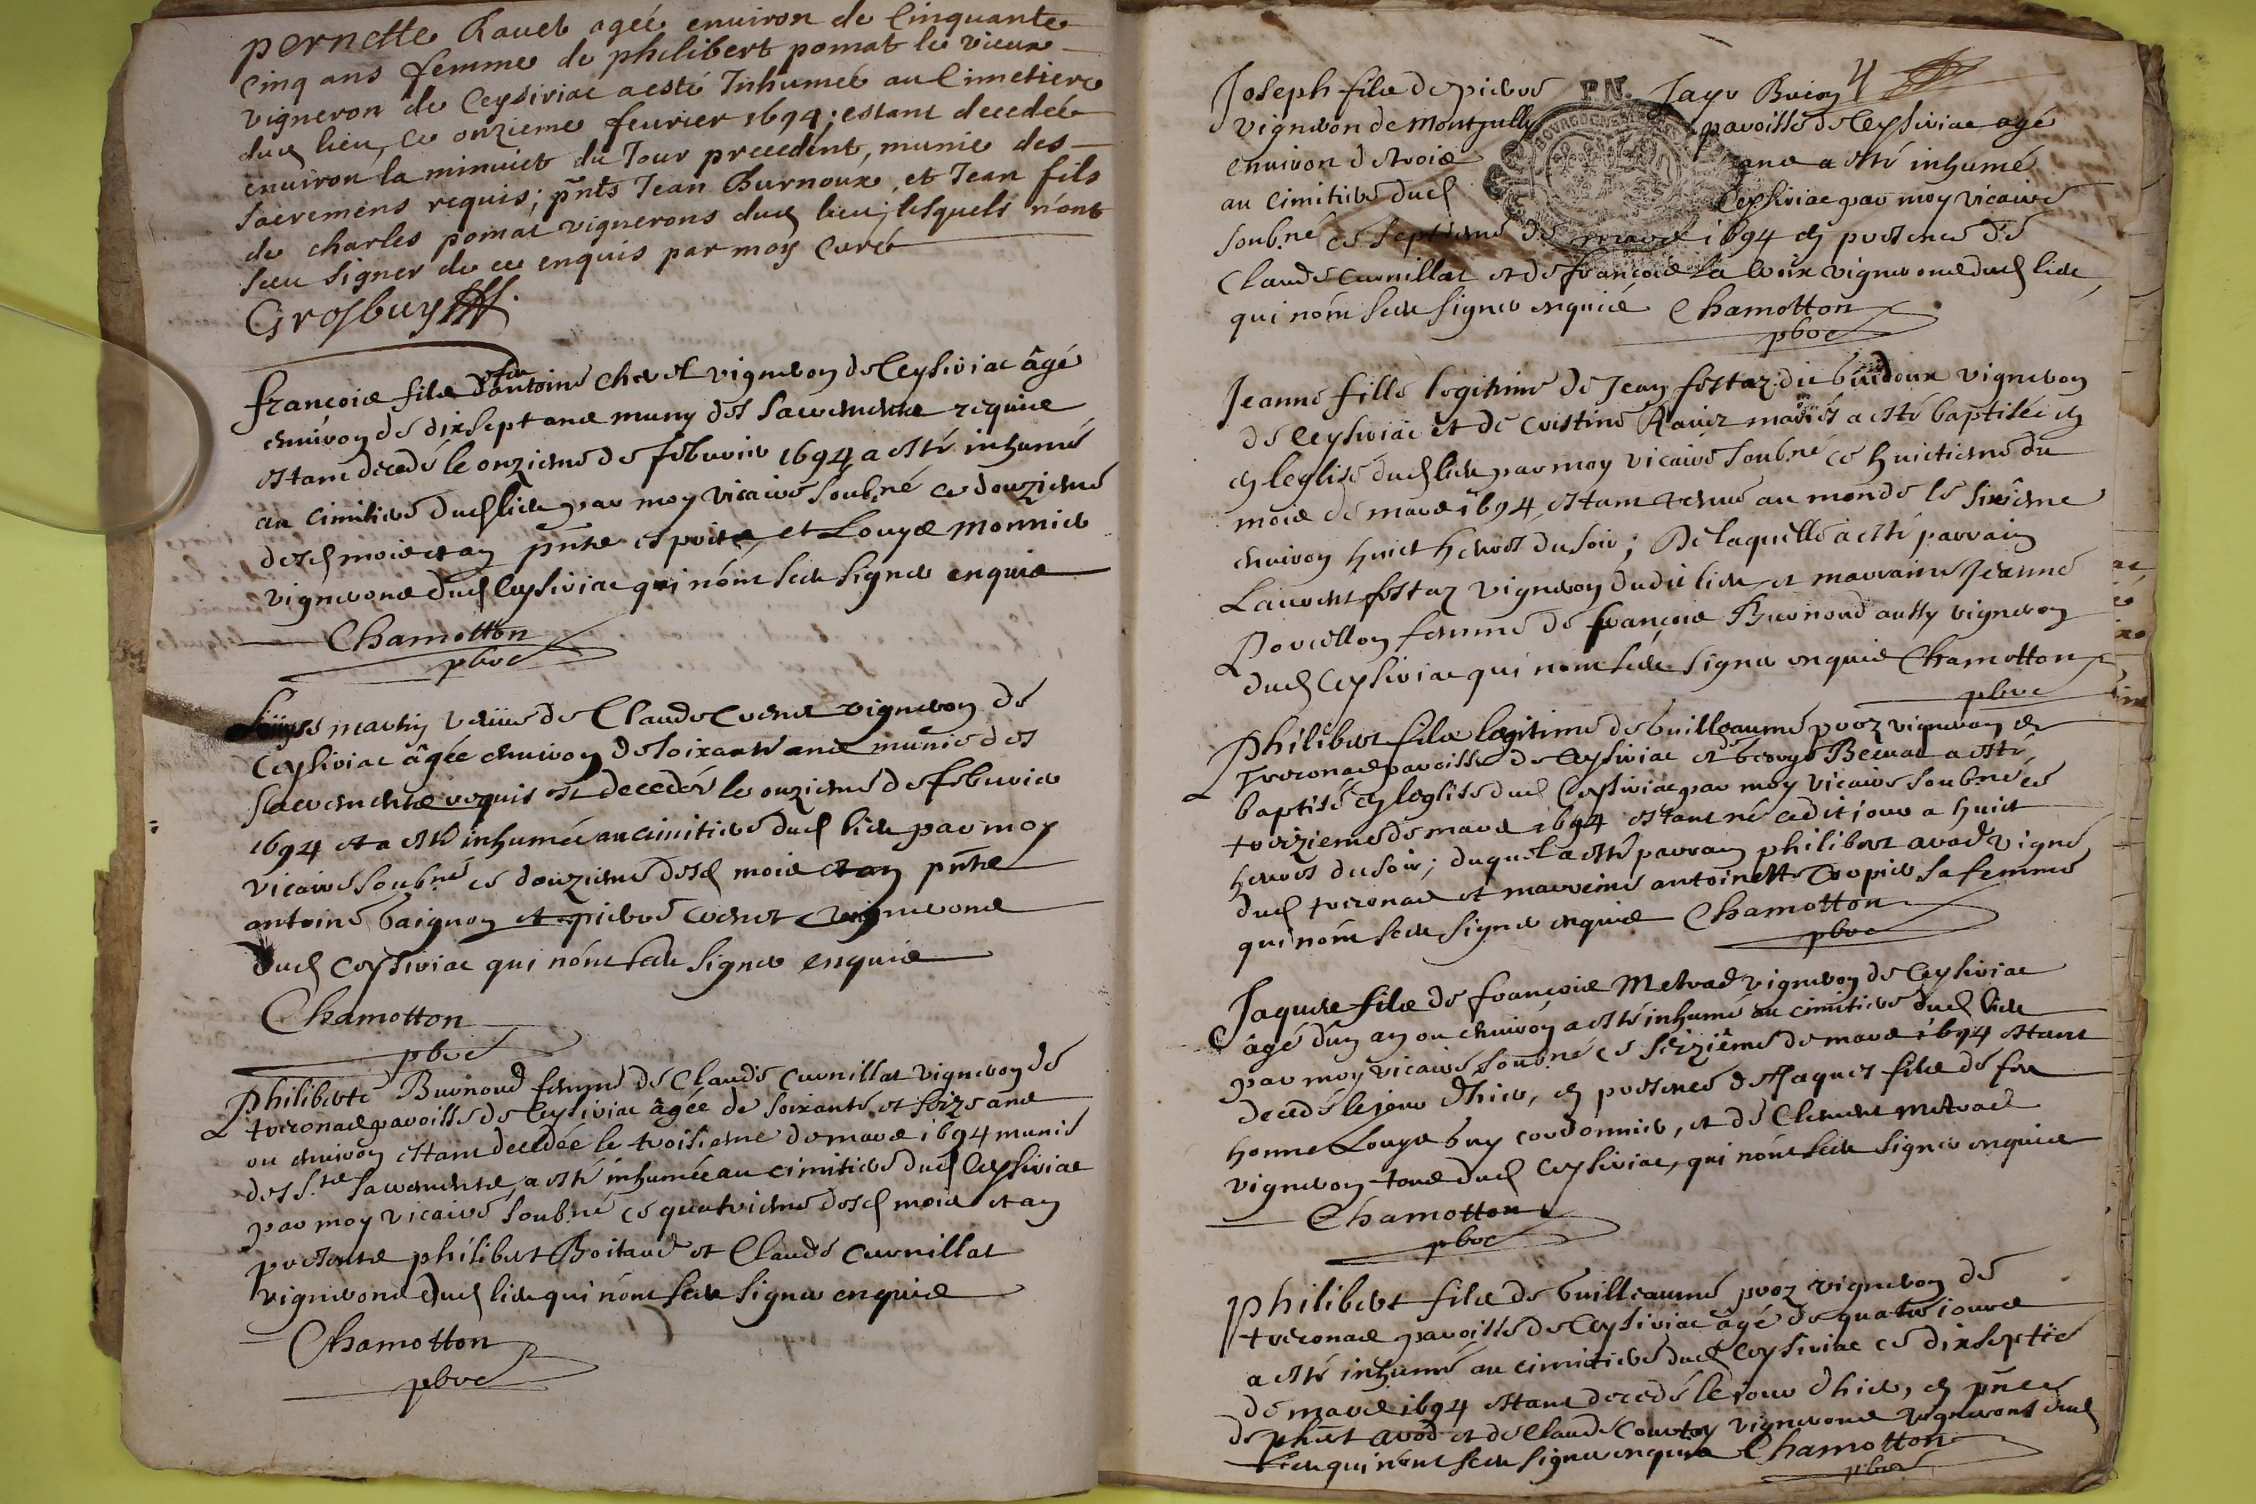 pernette Ravet agée environ de Cinquante
Cinq ans femme de philibert pomat le vieux
vigneron de Ceysiriac a esté Inhumée au Cimetiere
dud lieu, ce onzieme fevrier 1694; estant decedée
environ la minuict du Jour precedent, munie des
sacremens requis; pnts Jean Burnoux, et Jean fils
de charles pomat vignerons dud lieu, lesquels n'ont
sceu signer de ce enquis par moy Curé
Grosbuy
francois fils d'antoine chevet vigneron de Ceysiriac âgé
environ de dixsept ans muny des sacremens requis
estant decedé le onzieme de febvrier 1694 a esté inhumé
au cimitiere dud lieu par moy vicaire soubné ce douzieme
desd mois et an pnts et Louys Monnier
vignerons dud Ceysiriac qui n'ont sceu signer enquis
Chamotton
pbre
martin veuve de Claude vigneron de
Ceysiriac âgée environ de soixante ans munie des
sacremens requis est decedée le onzieme de febvrier
1694 et a esté inhumée au cimitiere dud lieu par moy
vicaire soubné ce douzieme desd mois et an pnts
antoine Gaignon et pierre vignerons
dud Ceysiriac qui n'ont sceu signer enquis
Chamotton
pbre
Philiberte Burnoud femme de Claude Curnillat vigneron de
treconas paroisse de Ceysiriac âgée de soixante et seize ans
ou environ estant decedée le troisieme de mars 1694 munie
des sts sacremens, a esté inhumée au cimitiere dud Ceysiriac
par moy vicaire soubné ce quatrieme desd mois et an
presents philibert Boitard et Claude Curnillat
vignerons dud lieu qui n'ont sceu signer enquis
Chamotton
pbre
4
Joseph fils de pierre Jayr
vigneron de Montjully paroisse de Ceysiriac agé
environ de trois ans a esté inhumé
au cimitiere dud Ceysiriac par moy vicaire
soubné ce septieme de mars 1694 en presence de
Claude Curnillat et de francois la Croix vignerons dud lieu
qui n'ont sceu signer enquis Chamotton
pbre
Jeanne fille legitime de Jean fostaz dit vigneron
de Ceysiriac et de Cristine Ravier mariés a esté baptisée en
en leglise dud lieu par moy vicaire soubné ce huictieme du
mois de mars 1694 estant venue au monde le sixieme
environ huict heures du soir; De laquelle a esté parrain
Laurent fostaz vigneron dudit lieu et marraine Jeanne
Porcellon femme de francois Burnoud aussy vigneron
dud Ceysiriac qui n'ont sceu signer enquis Chamotton
pbre
Philibert fils legitime de Guilleaume proz vigneron de
treconas paroisse de Ceysiriac et de a esté
baptisé en leglise dud Ceysiriac par moy vicaire soubné ce
treizieme de mars 1694 estant né cedit jour a huict
heures du soir; duquel a esté parrain philibert avod vigne
dud treconas et marreine antoinette Tropier sa femme
qui n'ont sceu signer enquis Chamotton
pbre
Jaques fils de francois Metrad vigneron de Ceysiriac
âgé d'un an ou environ a esté inhumé au cimitiere dud lieu
par moy vicaire soubné ce seizieme de mars 1694 estant
decedé le jour d'hier, en presence de Jaques fils de feu
honne Louys Guy cordonnier, et de Clement Metrad
vigneron tous dud Ceysiriac, qui n'ont sceu signer enquis
Chamotton
pbre
Philibert fils de Guilleaume proz vigneron de
treconas paroisse de Ceysiriac âgé de quatre jours
a esté inhumé au cimitiere dud Ceysiriac ce dixseptie
de mars 1694 estant decedé le jour d'hier, en pnce
de phist avod et de Claude vignerons vignerons dud
lieu qui n'ont sceu signer enquis Chamotton
pbre